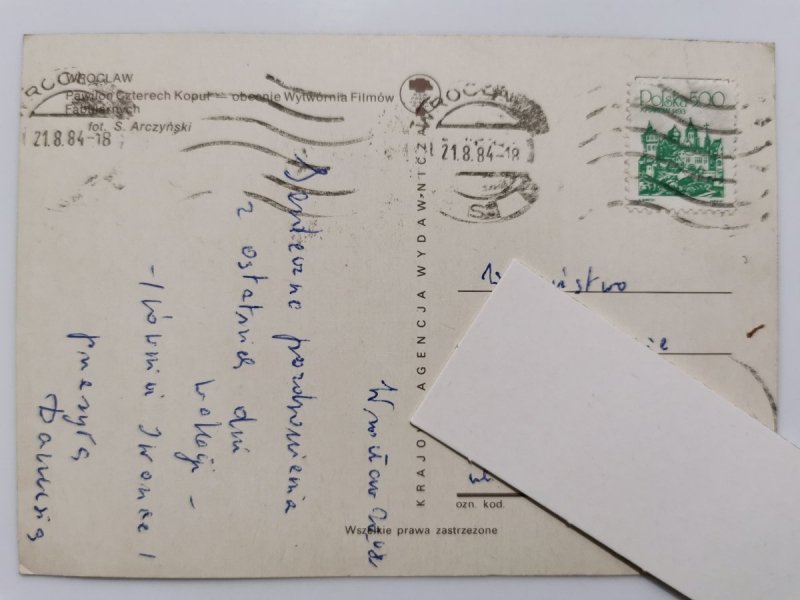 WROCŁAW
Pawilon Czterech Kopuł — obecnie Wytwórnia Filmów
Fabularnych
fot. S. Arczyński
21.8.84-18
21.8.84-18
Polska 500
KRAJOWA AGENCJA WYDAWNICZA
Serdeczne pozdrowienia
z ostatnich dni
wakacji -
przesyła
Danusia
Wrocław
ństwo
ozn. kod.
Wszelkie prawa zastrzeżone